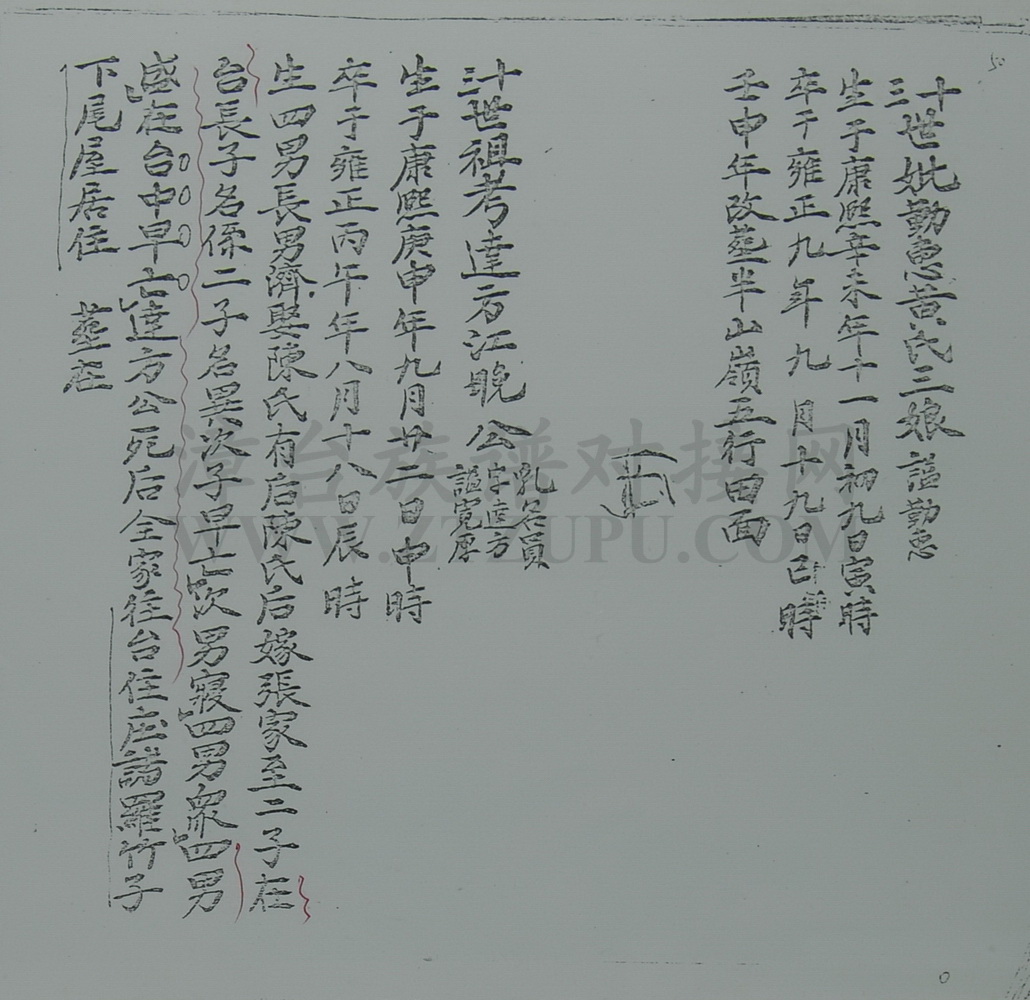 50
十三世妣勤惠黄氏三娘 謚勤惠
生于康熙辛未年十一月初九日寅時
卒于雍正九年九月十九日巳時
壬申年改葬半山嶺五行田面
十三世祖考達方江晚公 乳名員 字達方 謚寬厚
生于康熙庚申年九月廿二日申時
卒于雍正丙午年八月十八日辰時
生四男長男濟娶陳氏有后陳氏后嫁張家至二子在
台長子名係二子名異次子早亡次男寢四男衆四男
盛在台中早亡達方公死后全家往台住庄諸羅竹子
下尾屋居住 葬在
漳台族譜对接网
WWW.ZTZUPU.COM